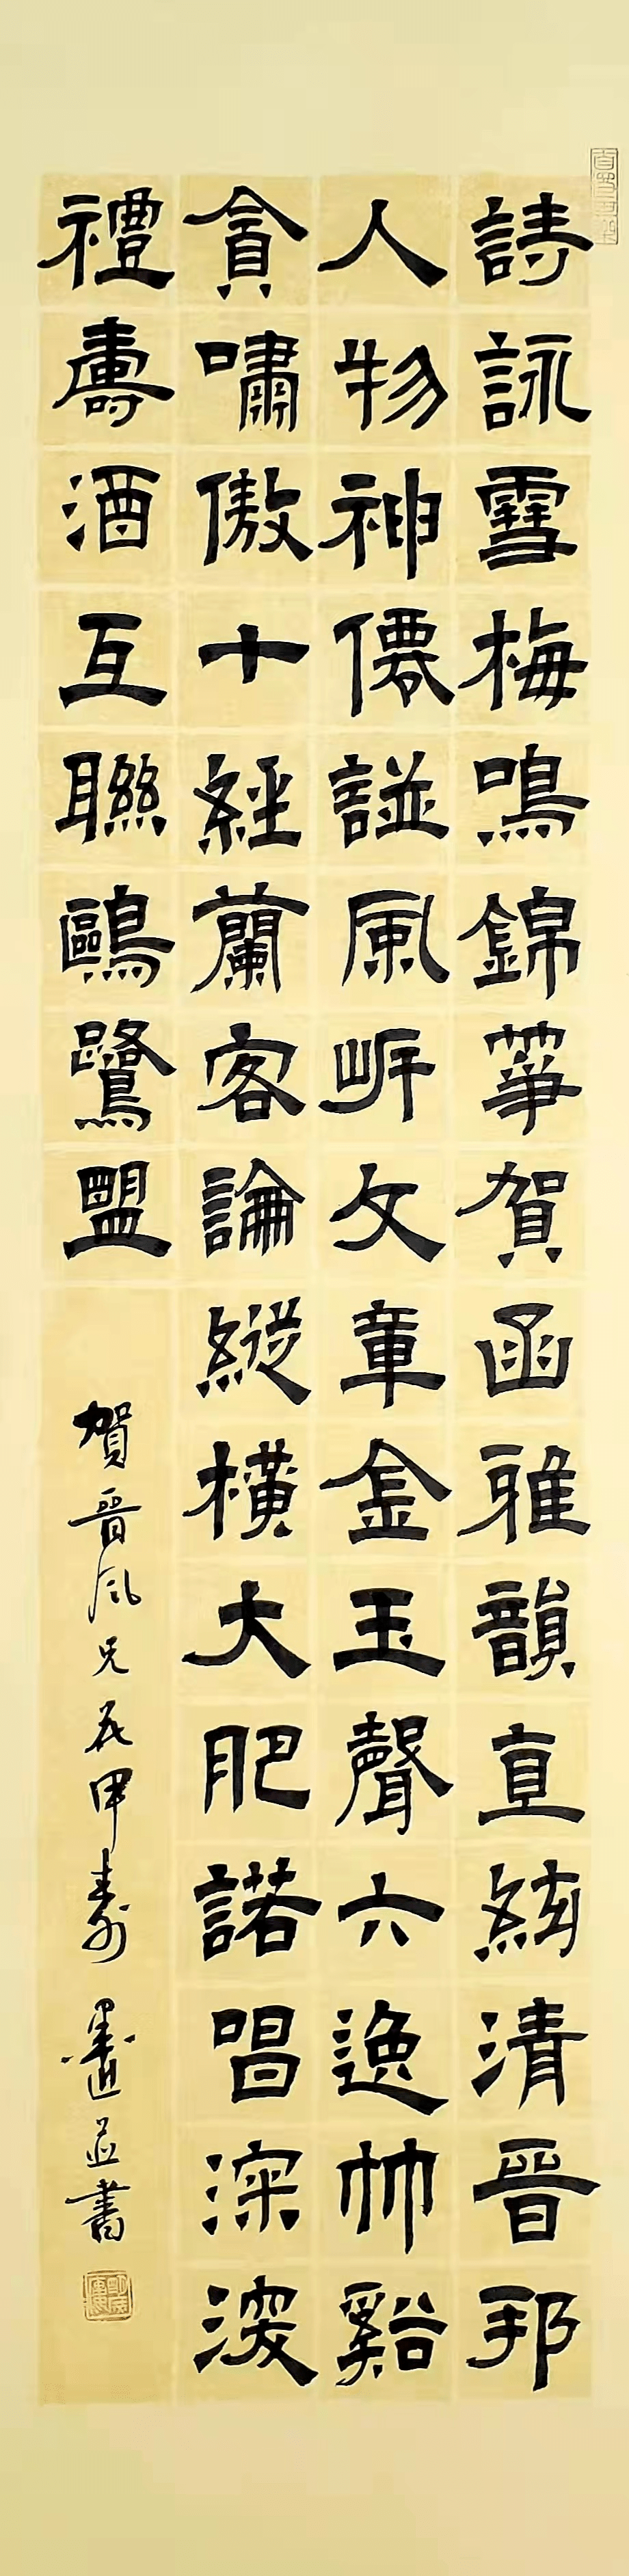 詩詠雪梅鳴錦箏賀函雅韻直絃清晉邦
人物神僊譜風岸文章金玉聲六逸竹谿
貪嘯傲十經蘭客論縱橫大肥諾唱深深
禮壽酒互聯鷗鷺盟
賀晉風兄花甲壽 墨並書